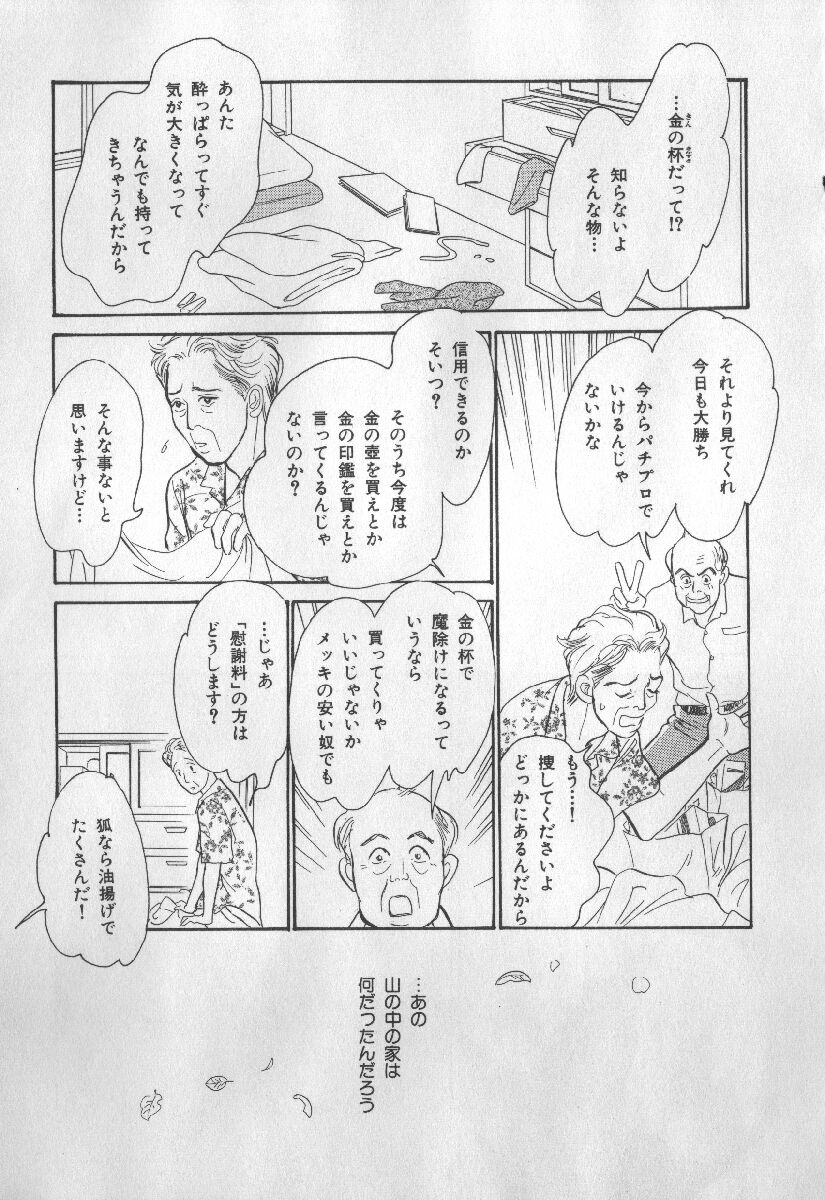 …金の杯だって!?
知らないよ
そんな物…
あんた
酔っぱらってすぐ
気が大きくなって
なんでも持って
きちゃうんだから
それより見てくれ
今日も大勝ち
今からパチプロで
いけるんじゃ
ないかな
もう…!
捜してくださいよ
どっかにあるんだから
信用できるのか
そいつ?
そのうち今度は
金の壺を買えとか
金の印鑑を買えとか
言ってくるんじゃ
ないのか?
そんな事ないと
思いますけど…
金の杯で
魔除けになるって
いうなら
買ってくりゃ
いいじゃないか
メッキの安い奴でも
…じゃあ
「慰謝料」の方は
どうします?
狐なら油揚げで
たくさんだ!
…あの
山の中の家は
何だったんだろう